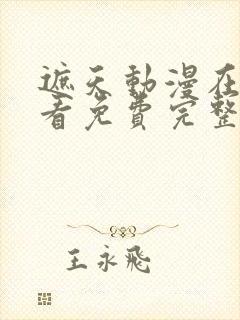 遮天動漫在
看免費完整
王永飛